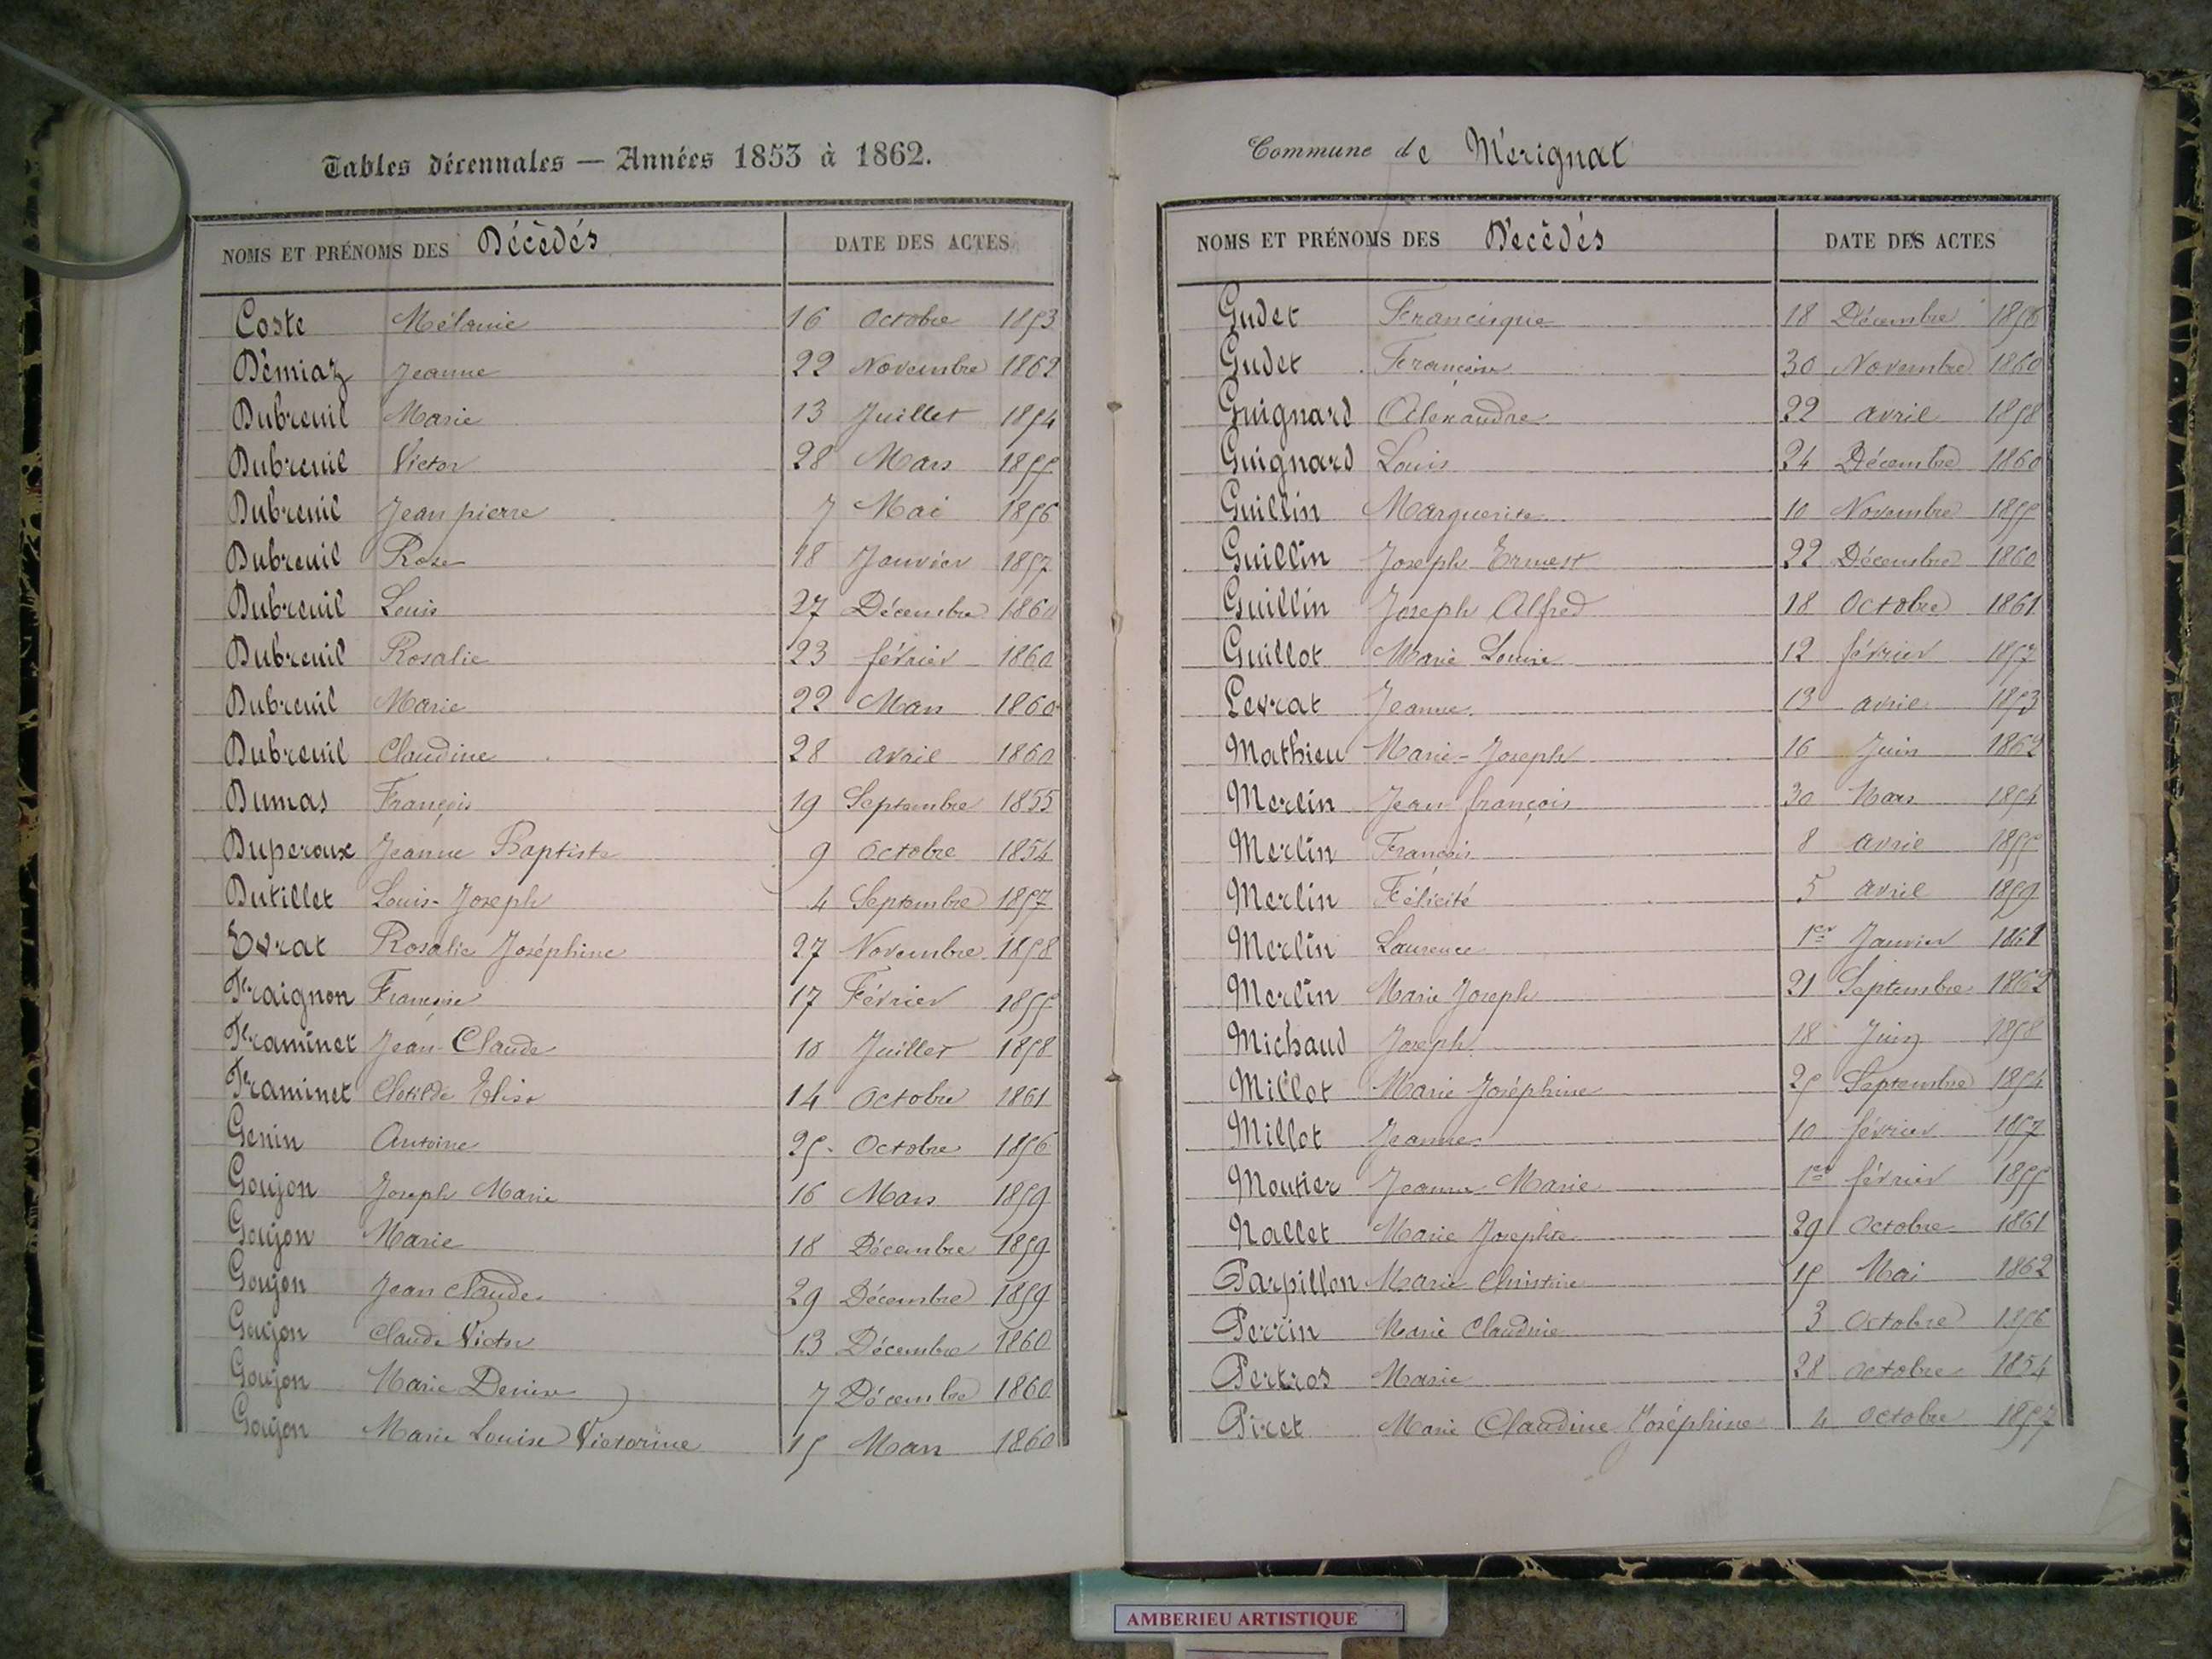 Tables décennales — Années 1853 à 1862.
NOMS ET PRÉNOMS DES Décèdés DATE DES ACTES
Coste Mélanie 16 Octobre 1853
Dèmiaz Jeanne 22 Novembre 1862
Dubreuil Marie 13 Juillet 1854
Dubreuil Victor 28 Mars 1855
Dubreuil Jean pierre 7 Mai 1856
Dubreuil Rose 18 Janvier 1857
Dubreuil Louis 27 Décembre 1860
Dubreuil Rosalie 23 février 1860
Dubreuil Marie 22 Mars 1860
Dubreuil Claudine 28 avril 1860
Dumas François 19 Septembre 1855
Duperoux Jeanne Baptiste 9 Octobre 1854
Dutillet Louis-Joseph 4 Septembre 1857
Evrat Rosalie Joséphine 27 Novembre 1858
Fraignon Françoise 17 Février 1855
Framinet Jean-Claude 10 Juillet 1858
Framinet Clotilde Elise 14 Octobre 1861
Genin Antoine 25 Octobre 1856
Goujon Joseph Marie 16 Mars 1859
Goujon Marie 18 Décembre 1859
Goujon Jean Claude 29 Décembre 1859
Goujon Claude Victor 13 Décembre 1860
Goujon Marie Denise 7 Décembre 1860
Goujon Marie Louise Victorine 15 Mars 1860
Commune de Mérignat
NOMS ET PRÉNOMS DES Décèdés DATE DES ACTES
Gudet Francisque 18 Décembre 1856
Gudet Françoise 30 Novembre 1860
Guignard Alexandre 22 avril 1858
Guignard Louis 24 Décembre 1860
Guillin Marguerite 10 Novembre 1855
Guillin Joseph Ernest 22 Décembre 1860
Guillin Joseph Alfred 18 Octobre 1861
Guillot Marie Louise 12 février 1857
Levrat Jeanne 13 avril 1853
Mathieu Marie-Joseph 16 Juin 1862
Merlin Jean françois 30 Mars 1854
Merlin François 8 avril 1855
Merlin Félicité 5 avril 1859
Merlin Laurence 1er Janvier 1861
Merlin Marie Joseph 21 Septembre 1862
Michaud Joseph 18 Juin 1858
Millot Marie Joséphine 25 Septembre 1854
Millot Jeanne 10 février 1857
Moutier Jeanne Marie 1er février 1855
Nallet Marie Josephte 29 Octobre 1861
Parpillon Marie Christine 15 Mai 1862
Perrin Marie Claudine 3 Octobre 1856
Pertros Marie 28 octobre 1854
Piret Marie Claudine Joséphine 4 octobre 1857
AMBERIEU ARTISTIQUE